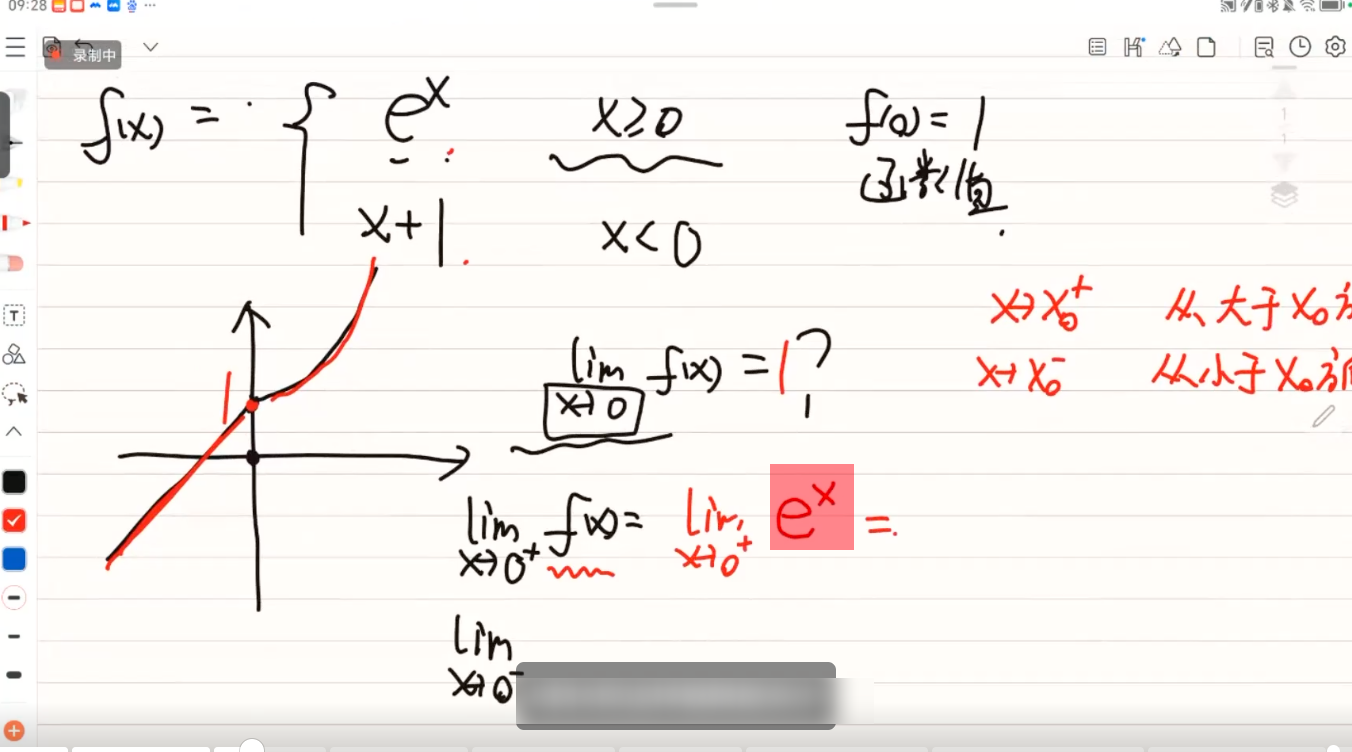 09:28
录制中
f(x) = { e^x x≥0
x+1 x<0
f(0) = 1
函数值
x→x₀⁺ 从大于x₀方
x→x₀⁻ 从小于x₀方向
1
lim x→0 f(x) = 1?
lim x→0⁺ f(x) = lim x→0⁺ e^x =
lim x→0⁻